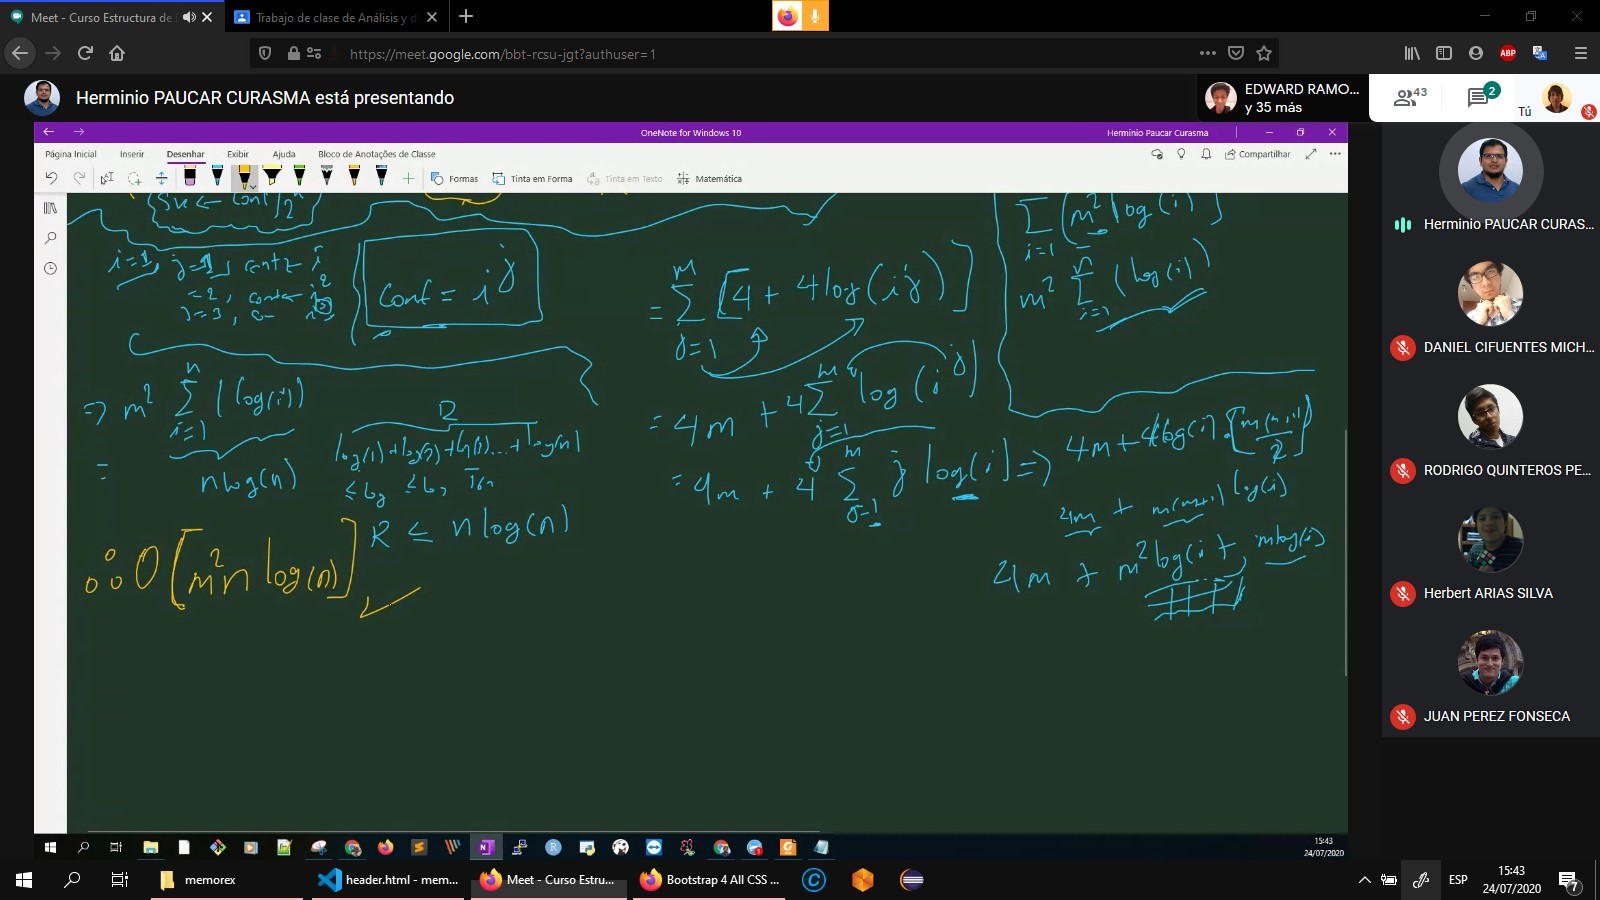 Meet - Curso Estructura de
Trabajo de clase de Análisis y d
https://meet.google.com/bbt-rcsu-jgt?authuser=1
ABP
Herminio PAUCAR CURASMA está presentando
EDWARD RAMO...
y 35 más
43
2
Tú
OneNote for Windows 10
Herminio Paucar Curasma
Página Inicial Inserir Desenhar Exibir Ajuda Bloco de Anotações de Classe
Compartilhar
Formas Tinta em Forma Tinta em Texto Matemática
i=1, j=1, contz i
=2, conta i²
j=3,
cont = i^j
= Σ_{j=1}^{m} [4 + 4log(i^j)]
Σ_{i=1} (m² log(i))
m² Σ_{i=1}^{n} (log(i))
=> m² Σ_{i=1}^{n} (log(i))
= n log(n)
R
log(1)+log(2)+ ... + log(n)
R ≤ n log(n)
∴ O[m²n log(n)]
= 4m + 4Σ_{j=1}^{m} log(i^j)
= 4m + 4 Σ_{j=1}^{m} j log(i) =>
4m + 4log(i).[m(m+1)/2]
4m + m(m+1) log(i)
4m + m² log(i) + m log(i)
Herminio PAUCAR CURAS...
DANIEL CIFUENTES MICH...
RODRIGO QUINTEROS PE...
Herbert ARIAS SILVA
JUAN PEREZ FONSECA
15:43
24/07/2020
memorex
header.html - mem...
Meet - Curso Estru...
Bootstrap 4 All CSS ...
ESP
15:43
24/07/2020
7